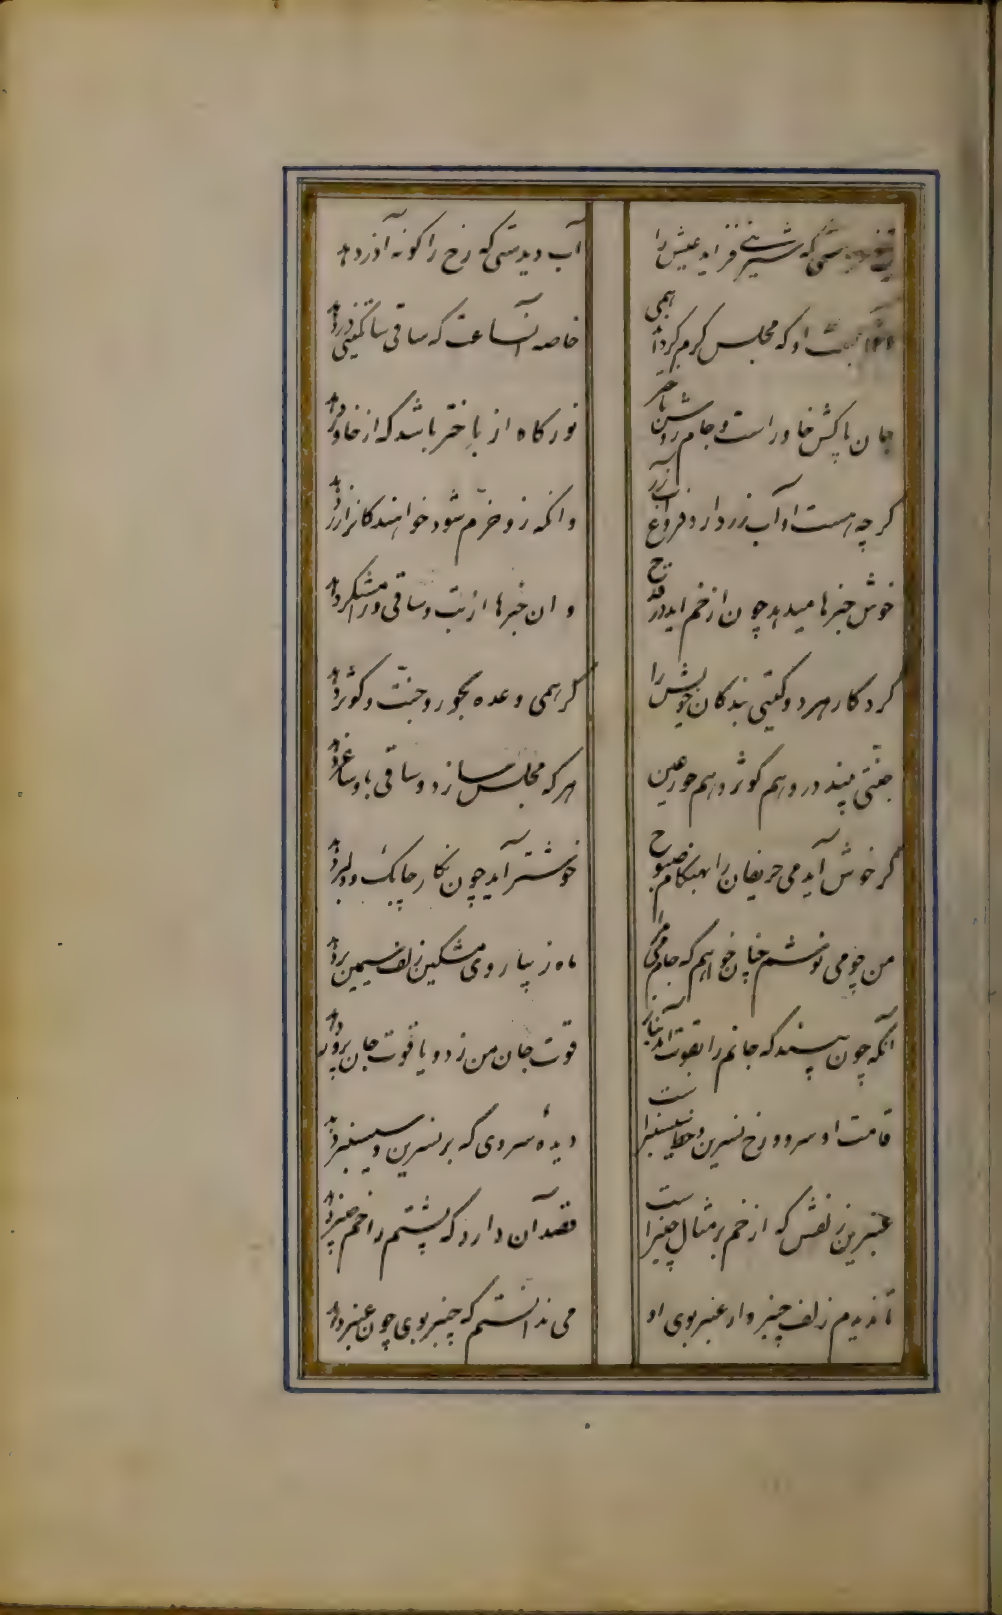 که شیرینی فزاید عیش را
آب دیدستی که رخ را کونه آذر دهد
او که مجلس کرم کرداند همی
خاصه آنساعت که ساقی ساتکینی در دهد
جان پاکش خاور است و جام روشن باختر
نور کاه از باختر باشد که از خاور دهد
کرچه هست او آب زر دارد فروغ آزر
وانکه زو خرم شود خواهندکانرا زر دهد
خوش خبرها میدهد چون از خم اید در قدح
وان خبرها از بت و ساقی و رامشکر دهد
کردکار مهر دو کیتی بندکان خویش را
کر همی وعده بحور و جنت و کوثر دهد
جنتی بیند درو هم کوثر و هم حور عین
هر که مجلس سازد و ساقی باو ساغر دهد
کر خوش آید می حریفان را بهنکام صبوح
خوشتر آید چون نکار چابک و دلبر دهد
من چو می نوشم چنان خواهم که جام می مرا
ماه زیبا روی مشکین زلف سیمین بر دهد
آنکه چون بیند که جانم را بقوت آمد نیاز
قوت جان من زدو یاقوت جان پرور دهد
قامت او سرو و رخ نسرین و خط سیسنبر است
دیدهٔ سروی که بر نسرین و سیسنبر دهد
عنبرین زلفش که از خم بر مثال چنبر است
قصد آن دارد که پشتم را خم چنبر دهد
تا ندیدم زلف چنبر وار عنبر بوی او
می ندانستم که چنبر بوی چون عنبر دهد